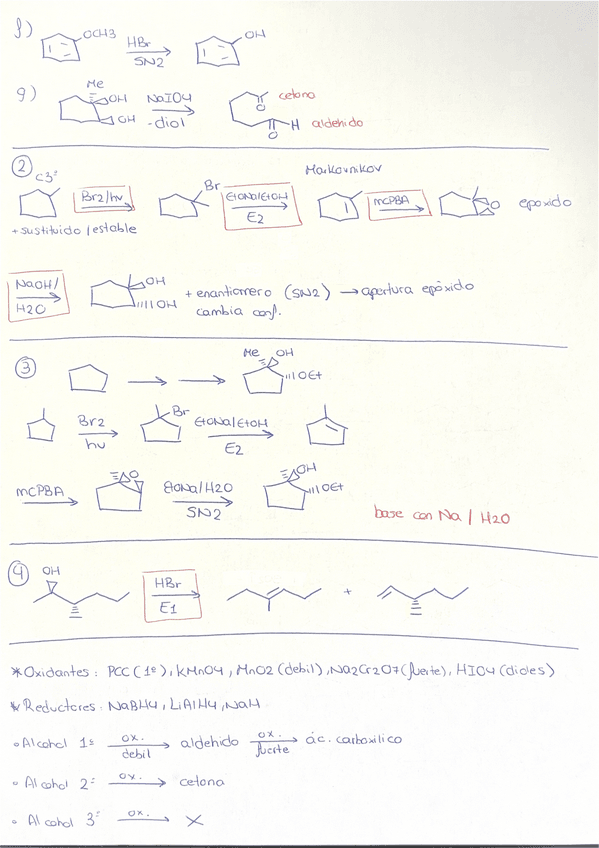 f) OCH3 HBr SN2 OH
g) Me OH OH NaIO4 -diol O cetona O H aldehido
② C3º Br2/hv Br EtONa/EtOH E2 Markovnikov mCPBA O epoxido
+ sustituido/estable
NaOH/ H2O OH OH + enantiomero (SN2) → apertura epóxido
cambia conf.
③ Me OH OEt
Br2 hv Br EtONa/EtOH E2
mCPBA O EtONa/H2O SN2 OH OEt
base con Na / H2O
④ OH HBr E1 +
* Oxidantes: PCC (1º), KMnO4, MnO2 (debil), Na2Cr2O7 (fuerte), HIO4 (dioles)
* Reductores. NaBH4, LiAlH4, NaH
• Alcohol 1º ox. debil aldehido ox. fuerte ác. carboxilico
• Alcohol 2º ox. cetona
• Alcohol 3º ox. X